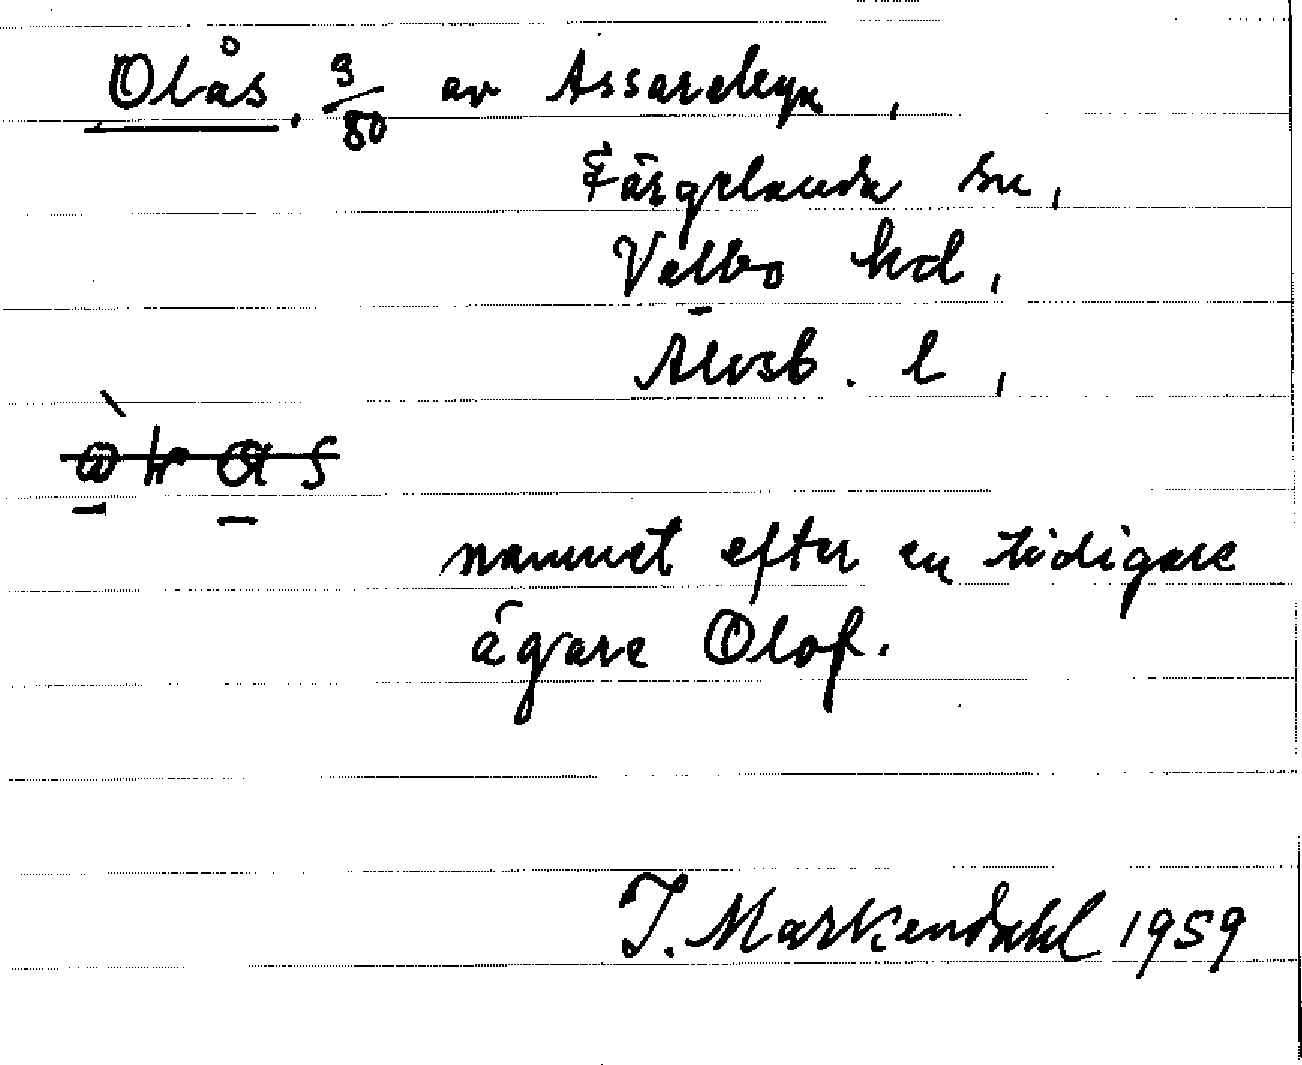 Olås. 9/80 av Assarebyn,
Färgelanda sn,
Valbo hd,
Älvsb. l,
namnet efter en tidigare
ägare Olof.
T. Markendahl 1959